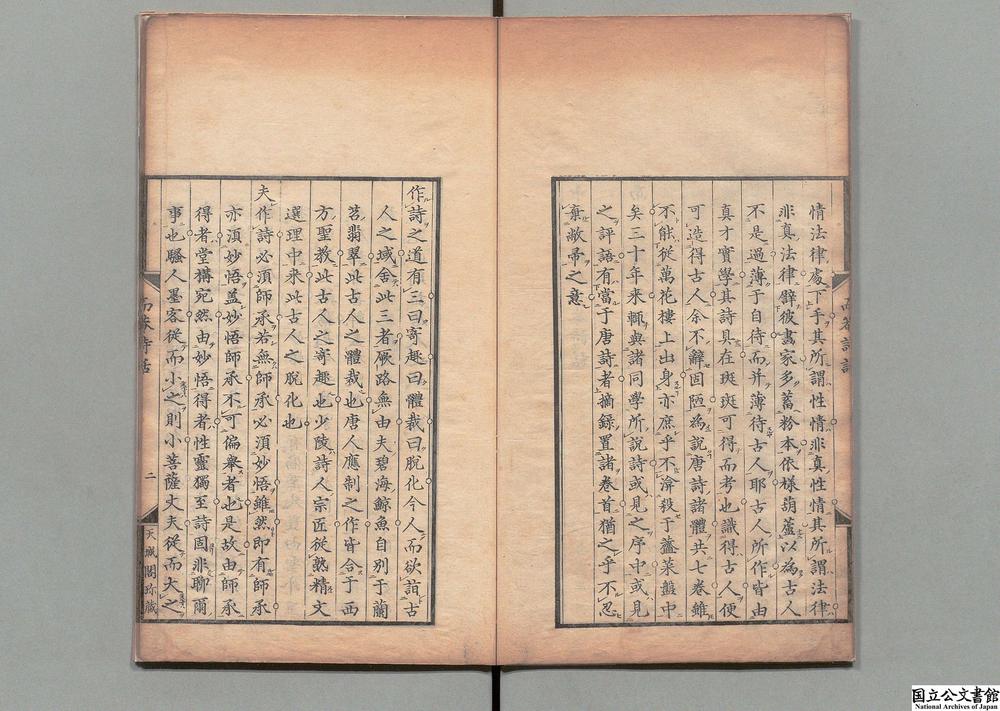 情法律處下手其所謂性情非真性情其所謂法律
非真法律譬彼畫家多蓄粉本依樣葫蘆以為古人
不是過薄于自待而并薄待古人耶古人所作皆由
真才實學其詩具在斑斑可得而考也識得古人便
可造得古人余不辭固陋為說唐詩諸體共七卷雖
不能從萬花樓上出身亦庶乎不渰殺于虀菜盤中
矣三十年來輒與諸同學所說詩或見之序中或見
之評語有當于唐詩者摘錄置諸卷首猶之乎不忍
棄敝帚之意
而菴詩話
作詩之道有三曰寄趣曰體裁曰脫化今人而欲詣古
人之域舍此三者厥路無由夫碧海鯨魚自別于蘭
苕翡翠此古人之體裁也唐人應制之作皆合于西
方聖教此古人之寄趣也少陵詩人宗匠從熟精文
選理中來此古人之脫化也
夫作詩必須師承若無師承必須妙悟雖然即有師承
亦須妙悟蓋妙悟師承不可偏舉者也是故由師承
得者堂構宛然由妙悟得者性靈獨至詩固非聊爾
事也騷人墨客從而小之則小菩薩丈夫從而大之
而菴詩話
二
天城閣珍藏
国立公文書館
National Archives of Japan